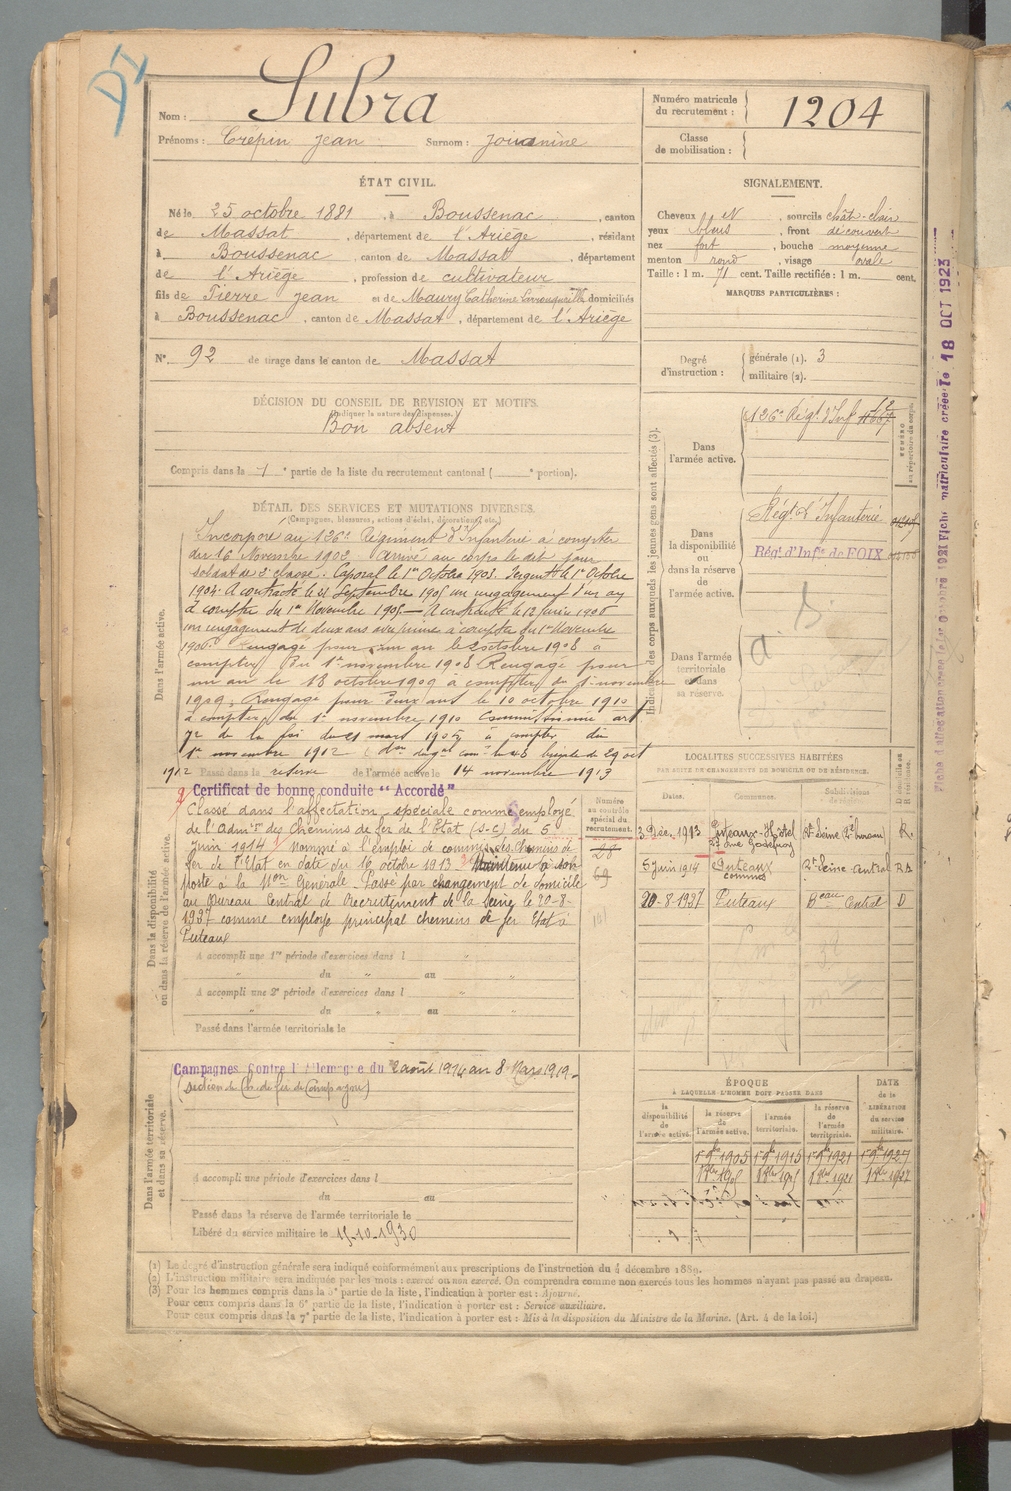 Nom : Subra
Prénoms : Crépin Jean Surnom : Jouanine
Numéro matricule du recrutement : 1204
Classe de mobilisation :
ÉTAT CIVIL.
Né le 25 octobre 1881, à Boussenac, canton
de Massat, département de l'Ariège, résidant
à Boussenac, canton de Massat, département
de l'Ariège, profession de cultivateur
fils de Pierre Jean et de Maury Catherine domiciliés
à Boussenac, canton de Massat, département de l'Ariège
N° 92 de tirage dans le canton de Massat
SIGNALEMENT.
Cheveux N, sourcils chât-clair
yeux bleus, front découvert
nez fort, bouche moyenne
menton rond, visage ovale
Taille : 1 m. 71 cent. Taille rectifiée : 1 m. cent.
MARQUES PARTICULIÈRES :
Degré d'instruction : générale (1). 3
militaire (2).
DÉCISION DU CONSEIL DE REVISION ET MOTIFS.
(Indiquer la nature des dispenses.)
Bon absent
Compris dans la 1e partie de la liste du recrutement cantonal ( e portion).
Indication des corps auxquels les jeunes gens sont affectés (3).
Dans l'armée active.
126e Régt d'Inf
NUMÉRO au répertoire du corps.
Dans la disponibilité ou dans la réserve de l'armée active.
Régt d'Infanterie
Rég. d'Infie de FOIX
Dans l'armée territoriale et dans sa réserve.
Dans l'armée active.
DÉTAIL DES SERVICES ET MUTATIONS DIVERSES.
(Campagnes, blessures, actions d'éclat, décorations, etc.)
Incorporé au 126e Régiment d'Infanterie à compter
du 16 Novembre 1902. Arrivé au corps le dit jour
soldat de 2e classe. Caporal le 1er Octobre 1903. Sergent le 1er Octobre
1904. A contracté le 21 Septembre 1905 un engagement d'un an
à compter du 1er Novembre 1905 — A contracté le 12
un engagement de deux ans avec prime à compter du 1er Novembre
1906. Rengagé pour un an le 2 octobre 1908 à
compter du 1er novembre 1908 Rengagé pour
un an le 18 octobre 1909 à compter du 1er novembre
1909, Rengagé pour deux ans le 10 octobre 1910
à compter du 1er novembre 1910 Commissionné art
de la loi du 21 mars 1905 à compter du
1er novembre 1912 brigade du 29 oct
1912 Passé dans la réserve de l'armée active le 14 novembre 1913
Certificat de bonne conduite "Accordé"
Dans la disponibilité ou dans la réserve de l'armée active.
Classé dans l'affectation spéciale comme employé
de l'Admion des Chemins de fer de l'Etat (S-C) du 5
juin 1914 nommé à l'emploi de commis des Chemins de
fer de l'Etat en date du 16 octobre 1913 Maintenu à son
poste à la Mon Générale. Passé par changement de domicile
au Bureau Central de recrutement de la Seine le 20-8-
1927 comme employé principal chemins de fer Etat à
Puteaux
A accompli une 1re période d'exercices dans l
du au
A accompli une 2e période d'exercices dans l
du au
Passé dans l'armée territoriale le
Numéro au contrôle spécial du recrutement.
28
69
LOCALITÉS SUCCESSIVES HABITÉES
PAR SUITE DE CHANGEMENTS DE DOMICILE OU DE RÉSIDENCE.
Dates. Communes. Subdivisions de région. D domicile ou R résidence.
3 Déc. 1913 Puteaux-Hôtel rue Godefroy Seine (2e bureau) R.
5 Juin 1914 Puteaux commis Seine Central
20-8-1927 Puteaux Beau Central D
Dans l'armée territoriale et dans sa réserve.
Campagnes Contre l'Allemagne du 2 août 1914 au 8 Mars 1919.
(section de Ch. de fer de Campagne)
A accompli une période d'exercices dans l
du au
Passé dans la réserve de l'armée territoriale le
Libéré du service militaire le 15-10-1930
ÉPOQUE
À LAQUELLE L'HOMME DOIT PASSER DANS
la disponibilité de l'armée active. la réserve de l'armée active. l'armée territoriale. la réserve de l'armée territoriale.
DATE de la LIBÉRATION du service militaire.
1er 9bre 1905 1er 9bre 1915 1er 9bre 1921 1er 9bre 1927
(1) Le degré d'instruction générale sera indiqué conformément aux prescriptions de l'instruction du 4 décembre 1889.
(2) L'instruction militaire sera indiquée par les mots : exercé ou non exercé. On comprendra comme non exercés tous les hommes n'ayant pas passé au drapeau.
(3) Pour les hommes compris dans la 5e partie de la liste, l'indication à porter est : Ajourné.
Pour ceux compris dans la 6e partie de la liste, l'indication à porter est : Service auxiliaire.
Pour ceux compris dans la 7e partie de la liste, l'indication à porter est : Mis à la disposition du Ministre de la Marine. (Art. 4 de la loi.)
Fiche matriculaire créée le 18 OCT 1923